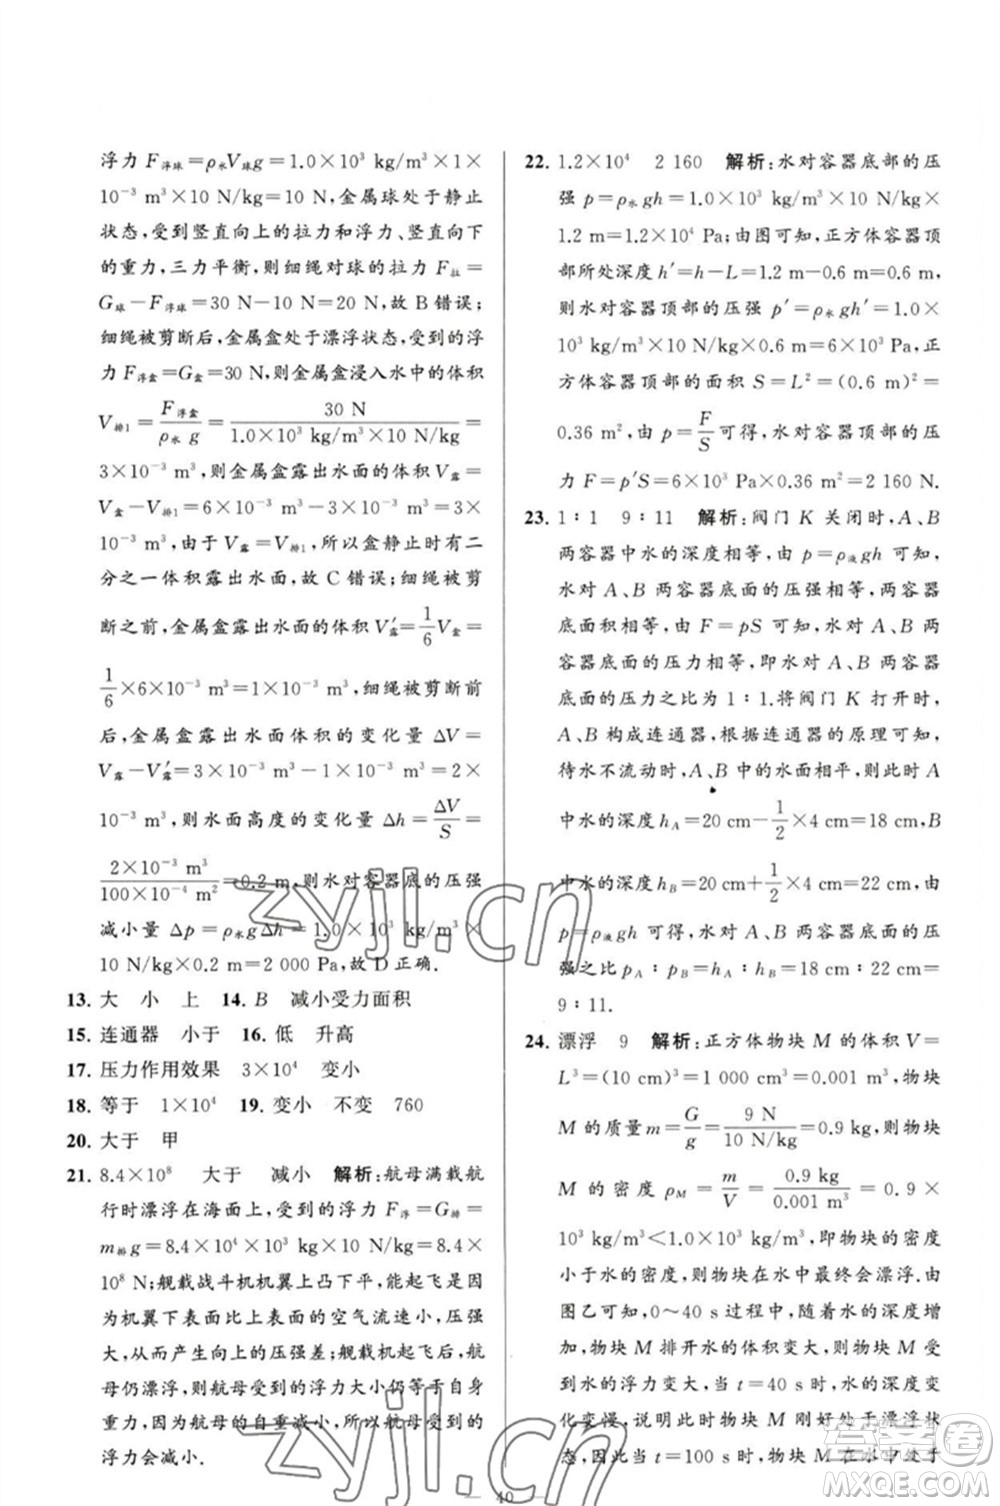 浮力 F浮球=ρ水V球g=1.0×10³ kg/m³×1×
10⁻³ m³×10 N/kg=10 N,金属球处于静止
状态,受到竖直向上的拉力和浮力、竖直向下
的重力,三力平衡,则细绳对球的拉力 F拉=
G球-F浮球=30 N-10 N=20 N,故 B 错误;
细绳被剪断后,金属盒处于漂浮状态,受到的浮
力 F浮盒=G盒=30 N,则金属盒浸入水中的体积
V排1=F浮盒/ρ水 g=30 N/1.0×10³ kg/m³×10 N/kg=
3×10⁻³ m³,金属盒露出水面的体积 V露=
V盒-V排1=6×10⁻³ m³-3×10⁻³ m³=3×10⁻³
m³,由于 V露=V排1,所以盒静止时有二
分之一体积露出水面,故 C 错误;细绳被剪
断之前,金属盒露出水面的体积 V′露=1/6V盒=
1/6×6×10⁻³ m³=1×10⁻³ m³,细绳被剪断前
后,金属盒露出水面体积的变化量 ΔV=
V露-V′露=3×10⁻³ m³-1×10⁻³ m³=2×
10⁻³ m³,则水面高度的变化量 Δh=ΔV/S=
2×10⁻³ m³/100×10⁻⁴ m²=0.2 m,则水对容器底的压强
减小量 Δp=ρ水gΔh=1.0×10³ kg/m³×
10 N/kg×0.2 m=2 000 Pa,故 D 正确.
13. 大 小 上 14. B 减小受力面积
15. 连通器 小于 16. 低 升高
17. 压力作用效果 3×10⁴ 变小
18. 等于 1×10⁴ 19. 变小 不变 760
20. 大于 甲
21. 8.4×10⁸ 大于 减小 解析:航母满载航
行时漂浮在海面上,受到的浮力 F浮=G排=
m排g=8.4×10⁷ kg×10 N/kg=8.4×
10⁸ N;舰载战斗机机翼上凸下平,能起飞是
因为机翼下表面比上表面的空气流速小、压强
大,从而产生向上的压强差;舰载机起飞后,航
母仍漂浮,受到的浮力大小仍等于航母自身
重力,因为航母的自重减小,所以航母受到的
浮力会减小.
22. 1.2×10⁴ 2 160 解析:水对容器底部的压
强 p=ρ水gh=1.0×10³ kg/m³×10 N/kg×
1.2 m=1.2×10⁴ Pa;由图可知,正方体容器顶
部所处深度 h′=h-L=1.2 m-0.6 m=0.6 m,
则水对容器顶部的压强 p′=ρ水gh′=1.0×
10³ kg/m³×10 N/kg×0.6 m=6×10³ Pa,正
方体容器顶部的面积 S=L²=(0.6 m)²=
0.36 m²,由 p=F/S可得,水对容器顶部的压
力 F=p′S=6×10³ Pa×0.36 m²=2 160 N.
23. 1∶1 9∶11 解析:阀门 K 关闭时,A、B
两容器中水的深度相等,由 p=ρ液gh 可知,
水对 A、B 两容器底面的压强相等,两容器
底面积相等,由 F=pS 可知,水对 A、B 两
容器底面的压力相等,即水对 A、B 两容器
底面的压力之比为 1∶1.将阀门 K 打开时,
A、B 构成连通器,根据连通器的原理可知,
待水不流动时,A、B 中的水面相平,则此时 A
中水的深度 hA=20 cm-1/2×4 cm=18 cm,B
中水的深度 hB=20 cm+1/2×4 cm=22 cm,由
p=ρ液gh 可知,此时水对 A、B 两容器底面的压
强之比 pA∶pB=hA∶hB=18 cm∶22 cm=
9∶11.
24. 漂浮 9 解析:正方体物块 M 的体积 V=
L³=(10 cm)³=1 000 cm³=0.001 m³,物块
M 的质量 m=G/g=9 N/10 N/kg=0.9 kg,则物块
M 的密度 ρM=m/V=0.9 kg/0.001 m³=0.9×
10³ kg/m³<1.0×10³ kg/m³,即物块的密度
小于水的密度,则物块在水中最终会漂浮.由
图乙可知,0~40 s 过程中,随着水的深度增
加,物块 M 排开水的体积变大,则物块 M 受
到水的浮力变大,当 t=40 s 时,水的深度变
化变慢,说明此时物块 M 刚好处于漂浮状
态,因此当 t=100 s 时,物块 M 在水中处于
zyjl.cn
zyjl.cn
40
答案圈
MXQE.COM